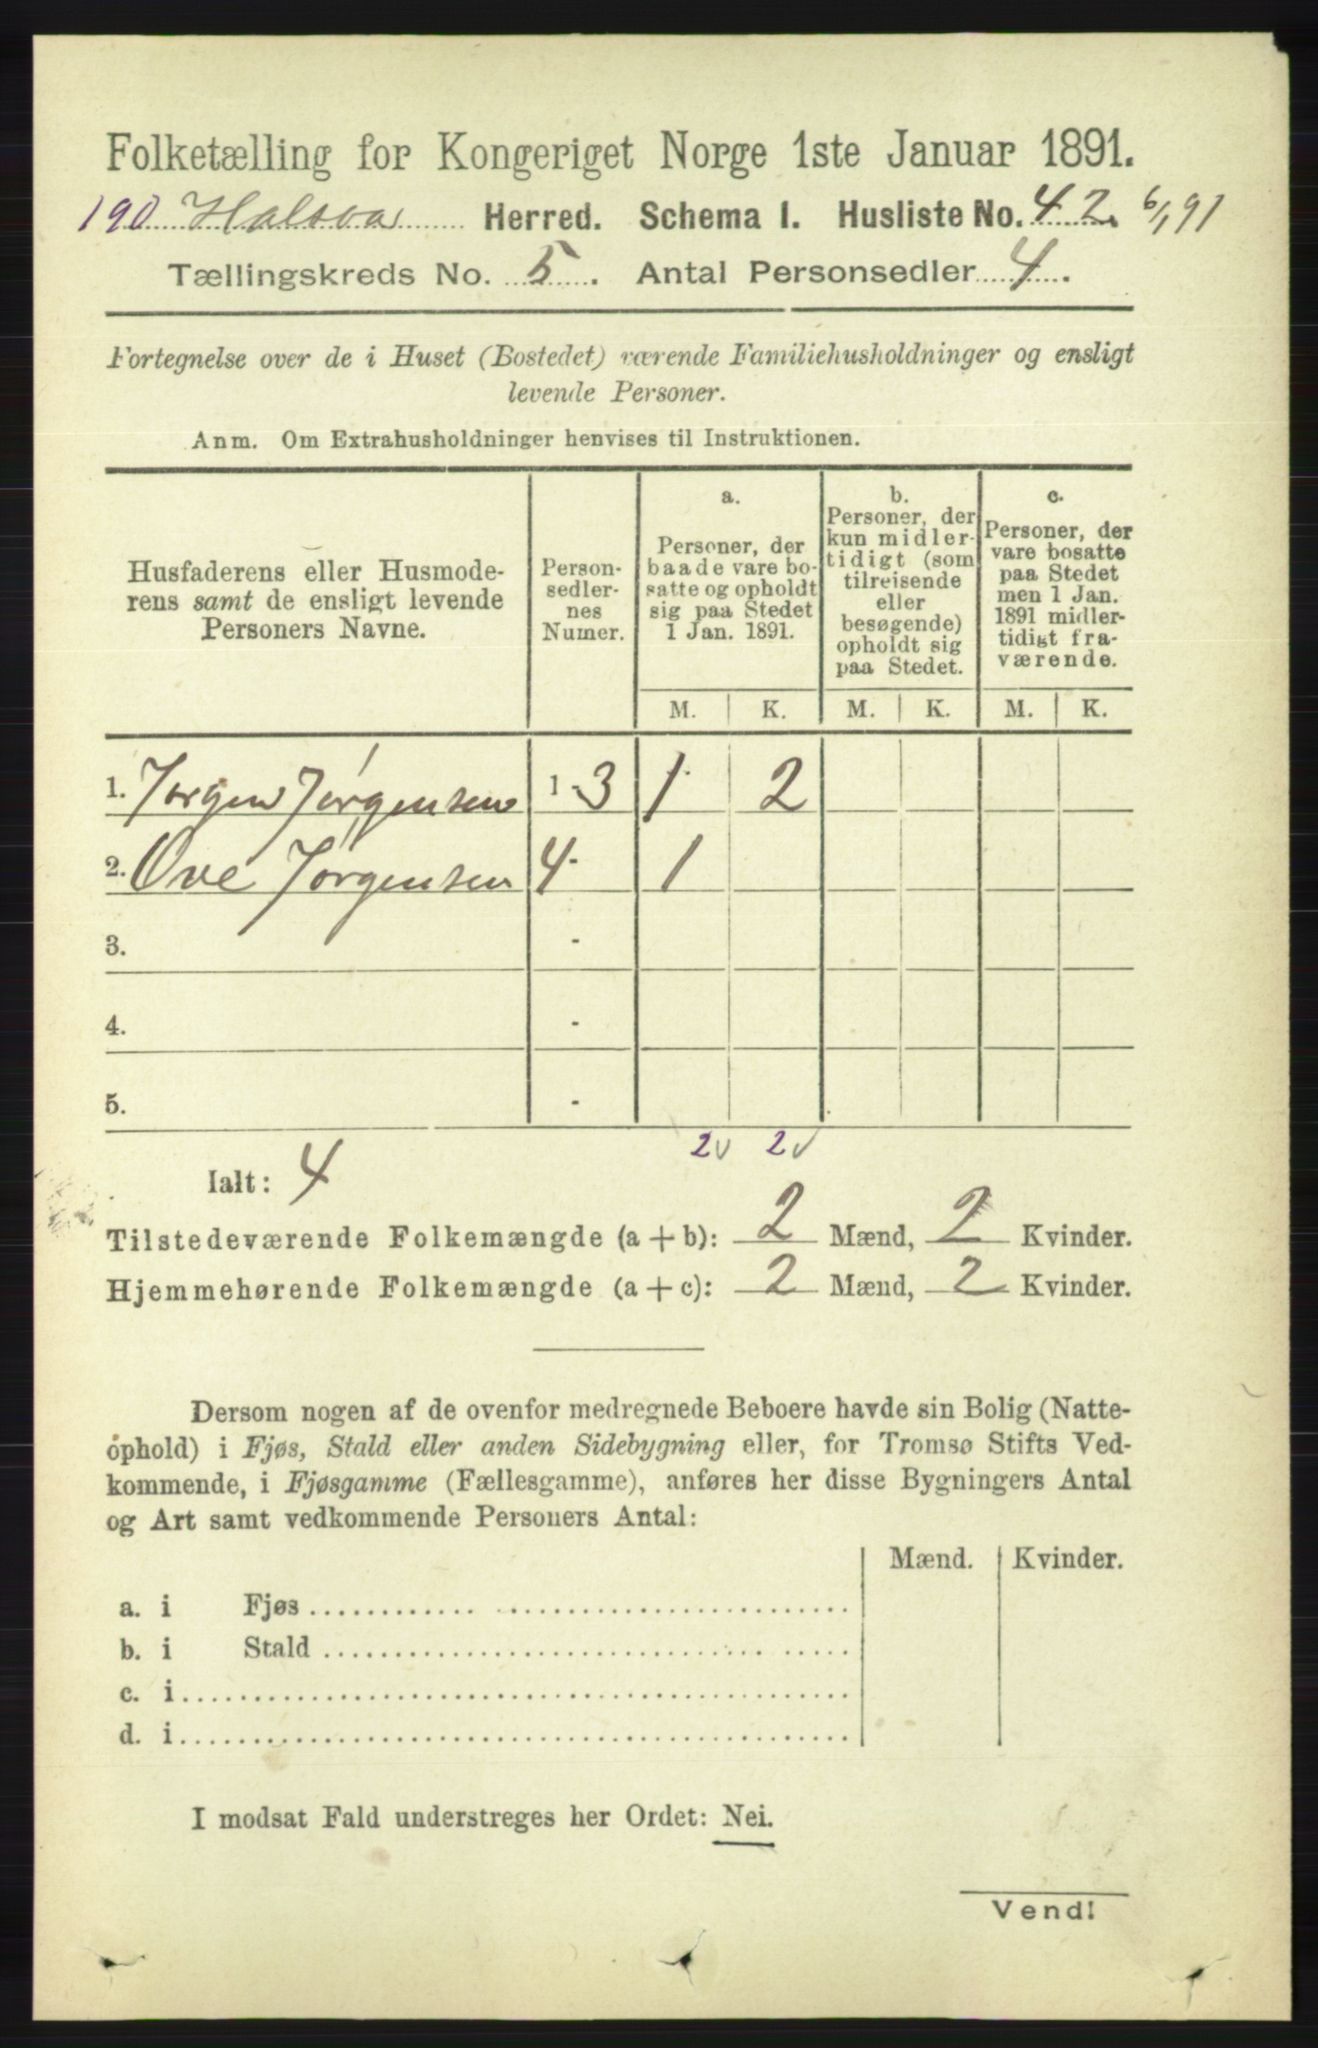 Folketælling for Kongeriget Norge 1ste Januar 1891.
190 Halsaa Herred. Schema I. Husliste No. 42. 6/1 91
Tællingskreds No. 5. Antal Personsedler 4.
Fortegnelse over de i Huset (Bostedet) værende Familiehusholdninger og ensligt
levende Personer.
Anm. Om Extrahusholdninger henvises til Instruktionen.
Husfaderens eller Husmode-
rens samt de ensligt levende
Personers Navne.
Person-
sedler-
nes
Numer.
a.
Personer, der
baade vare bo-
satte og opholdt
sig paa Stedet
1 Jan. 1891.
b.
Personer, der
kun midler-
tidigt (som
tilreisende
eller
besøgende)
opholdt sig
paa Stedet.
c.
Personer, der
vare bosatte
paa Stedet
men 1 Jan.
1891 midler-
tidigt fra-
værende.
M. K. M. K. M. K.
1. Jørgen Jørgensen 1-3 1 2
2. Ove Jørgensen 4- 1
3. -
4. -
5. -
2 2
Ialt: 4
Tilstedeværende Folkemængde (a + b): 2 Mænd, 2 Kvinder.
Hjemmehørende Folkemængde (a + c): 2 Mænd, 2 Kvinder.
Dersom nogen af de ovenfor medregnede Beboere havde sin Bolig (Natte-
ophold) i Fjøs, Stald eller anden Sidebygning eller, for Tromsø Stifts Ved-
kommende, i Fjøsgamme (Fællesgamme), anføres her disse Bygningers Antal
og Art samt vedkommende Personers Antal:
Mænd. Kvinder.
a. i Fjøs
b. i Stald
c. i
d. i
I modsat Fald understreges her Ordet: Nei.
Vend!